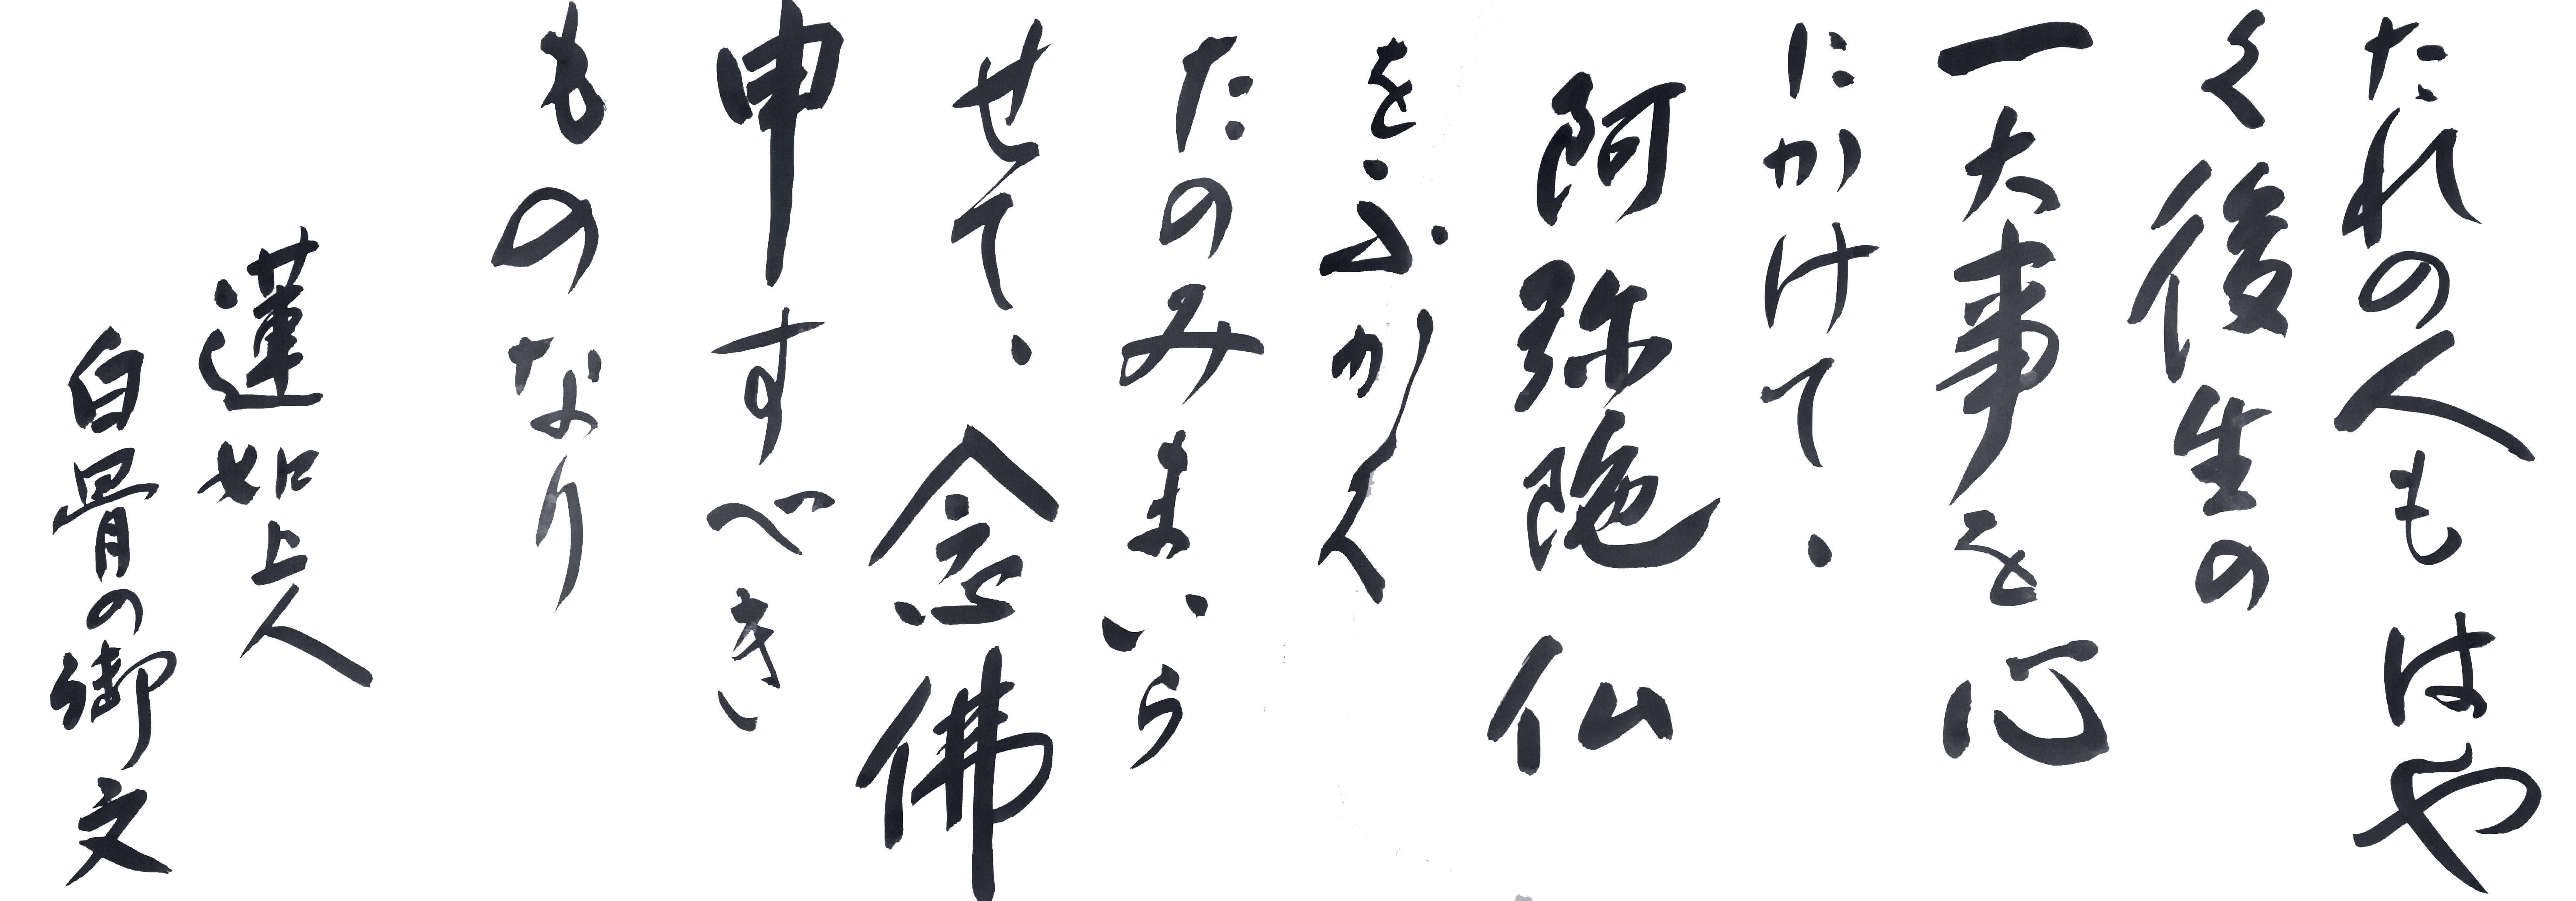 たれの人もはや
く後生の
一大事を心
にかけて、
阿弥陀仏
をふかく
たのみまいら
せて、念佛
申すべき
ものなり
蓮如上人
白骨の御文